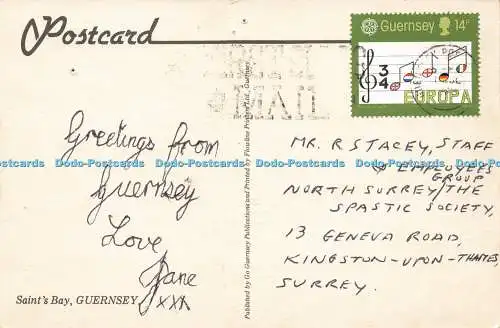 Postcard
Guernsey 14P
3
4
EUROPA
MAIL
Greetings from
Guernsey
Love
Jane
xxx
Saint's Bay, GUERNSEY
Published by Go Guernsey Publications and Printed by Fineline Posters Ltd., Guernsey
MR. R STACEY, STAFF
& EMPLOYEES
GROUP
NORTH SURREY/THE
SPASTIC SOCIETY,
13 GENEVA ROAD,
KINGSTON-UPON-THAMES,
SURREY.
Dodo-Postcards Dodo-Postcards Dodo-Postcards Dodo-Postcards Dodo-Postcards Dodo-Postcards